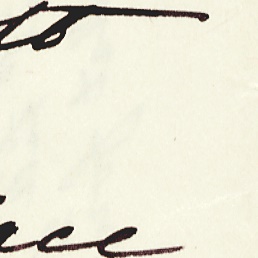 to
ace